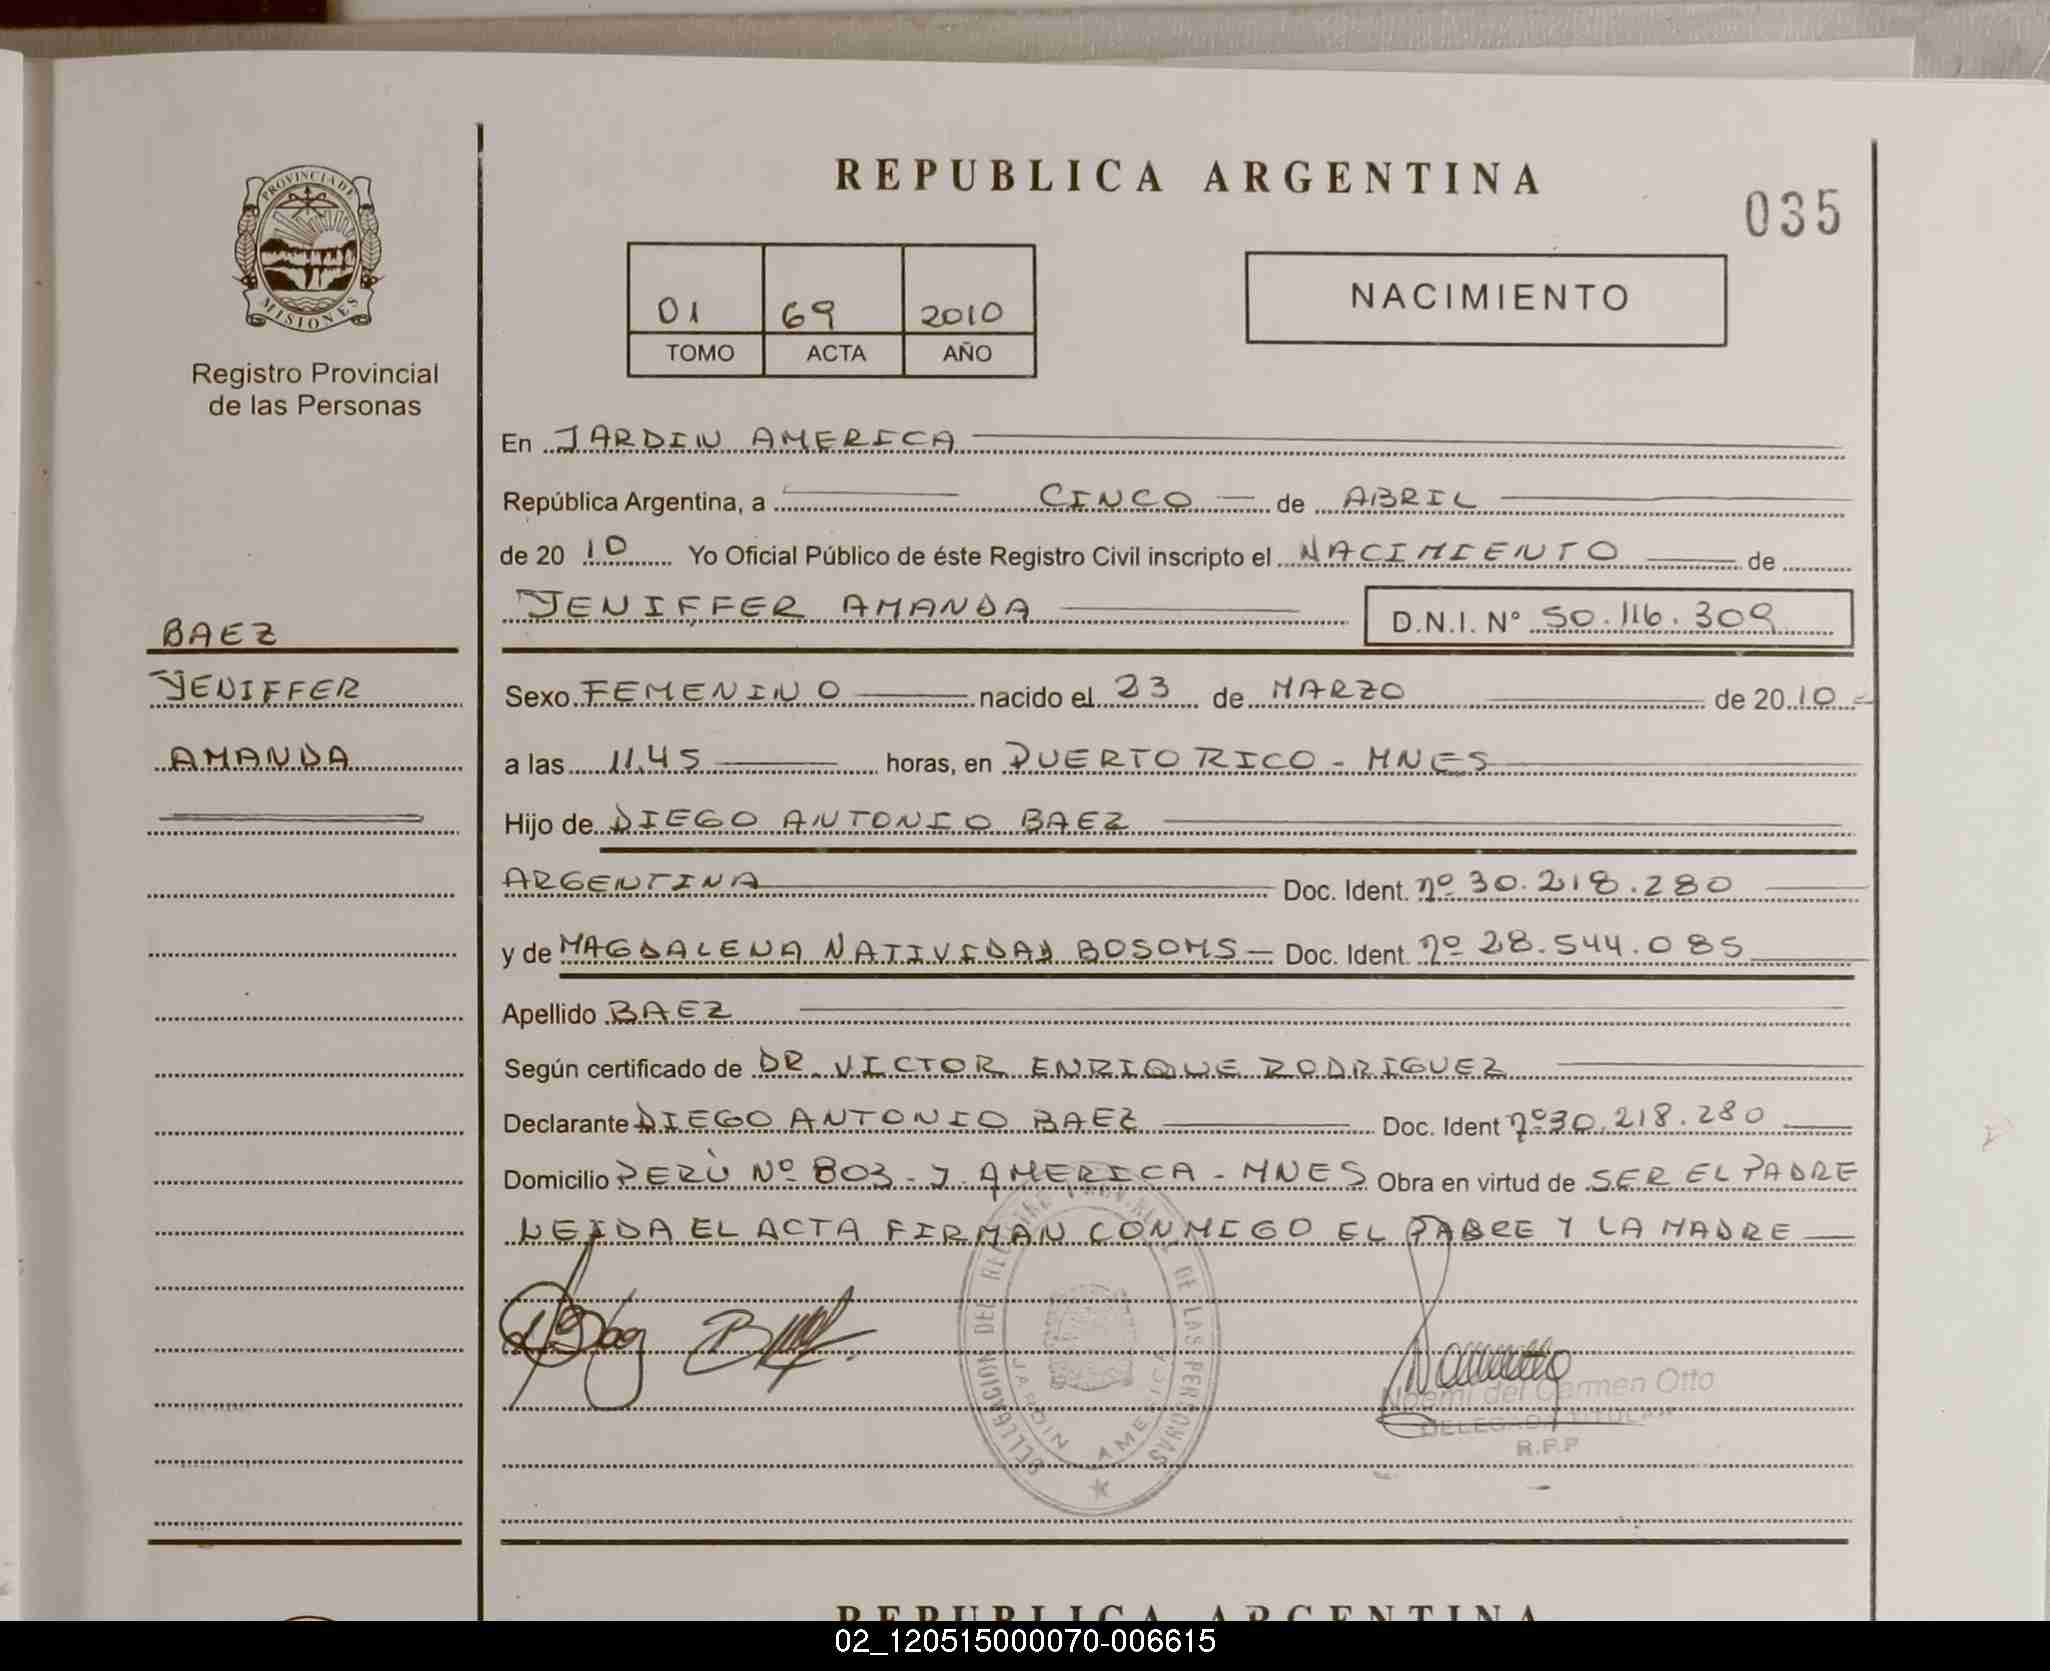 REPUBLICA ARGENTINA
035
PROVINCIA DE
MISIONES
Registro Provincial
de las Personas
01 69 2010
TOMO ACTA AÑO
NACIMIENTO
En JARDIN AMERICA
República Argentina, a CINCO de ABRIL
de 20 10 Yo Oficial Público de éste Registro Civil inscripto el NACIMIENTO de
YENIFFER AMANDA D.N.I. Nº 50.116.309
BAEZ
YENIFFER
AMANDA
Sexo FEMENINO nacido el 23 de MARZO de 20 10
a las 11,45 horas, en PUERTO RICO - MNES
Hijo de DIEGO ANTONIO BAEZ
ARGENTINA Doc. Ident. nº 30.218.280
y de MAGDALENA NATIVIDAD BOSOMS Doc. Ident. nº 28.544.085
Apellido BAEZ
Según certificado de DR. VICTOR ENRIQUE RODRIGUEZ
Declarante DIEGO ANTONIO BAEZ Doc. Ident nº 30.218.280
Domicilio PERÙ Nº 803 - J. AMERICA - MNES Obra en virtud de SER EL PADRE
LEIDA EL ACTA FIRMAN CONMIGO EL PADRE Y LA MADRE
DELEGACION DEL REGISTRO PROV. DE LAS PERSONAS
JARDIN AMERICA
Noemi del Carmen Otto
DELEGADA TITULAR
R.P.P
REPUBLICA ARGENTINA
02_120515000070-006615